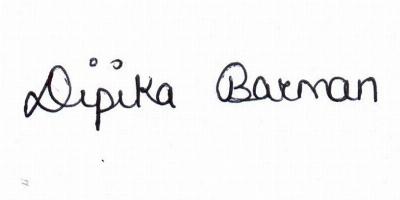 Dipika Barman